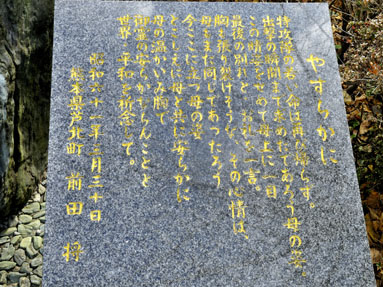 やすらかに
特攻隊の若い命は再び帰らず。
出撃の瞬間まで求めたであろう母の姿。
この晴姿をせめて母上に一目
最後の別れと お礼を一言。
胸も張り裂けそうな、その心情は、
母もまた同じであったろう
今ここに立つ母の姿
とこしえに母と共に安らかに
母の温かいみ胸で
御霊の安らかならんことと
世界の平和を祈念して。
昭和六十一年三月三十日
熊本県芦北町 前田 将